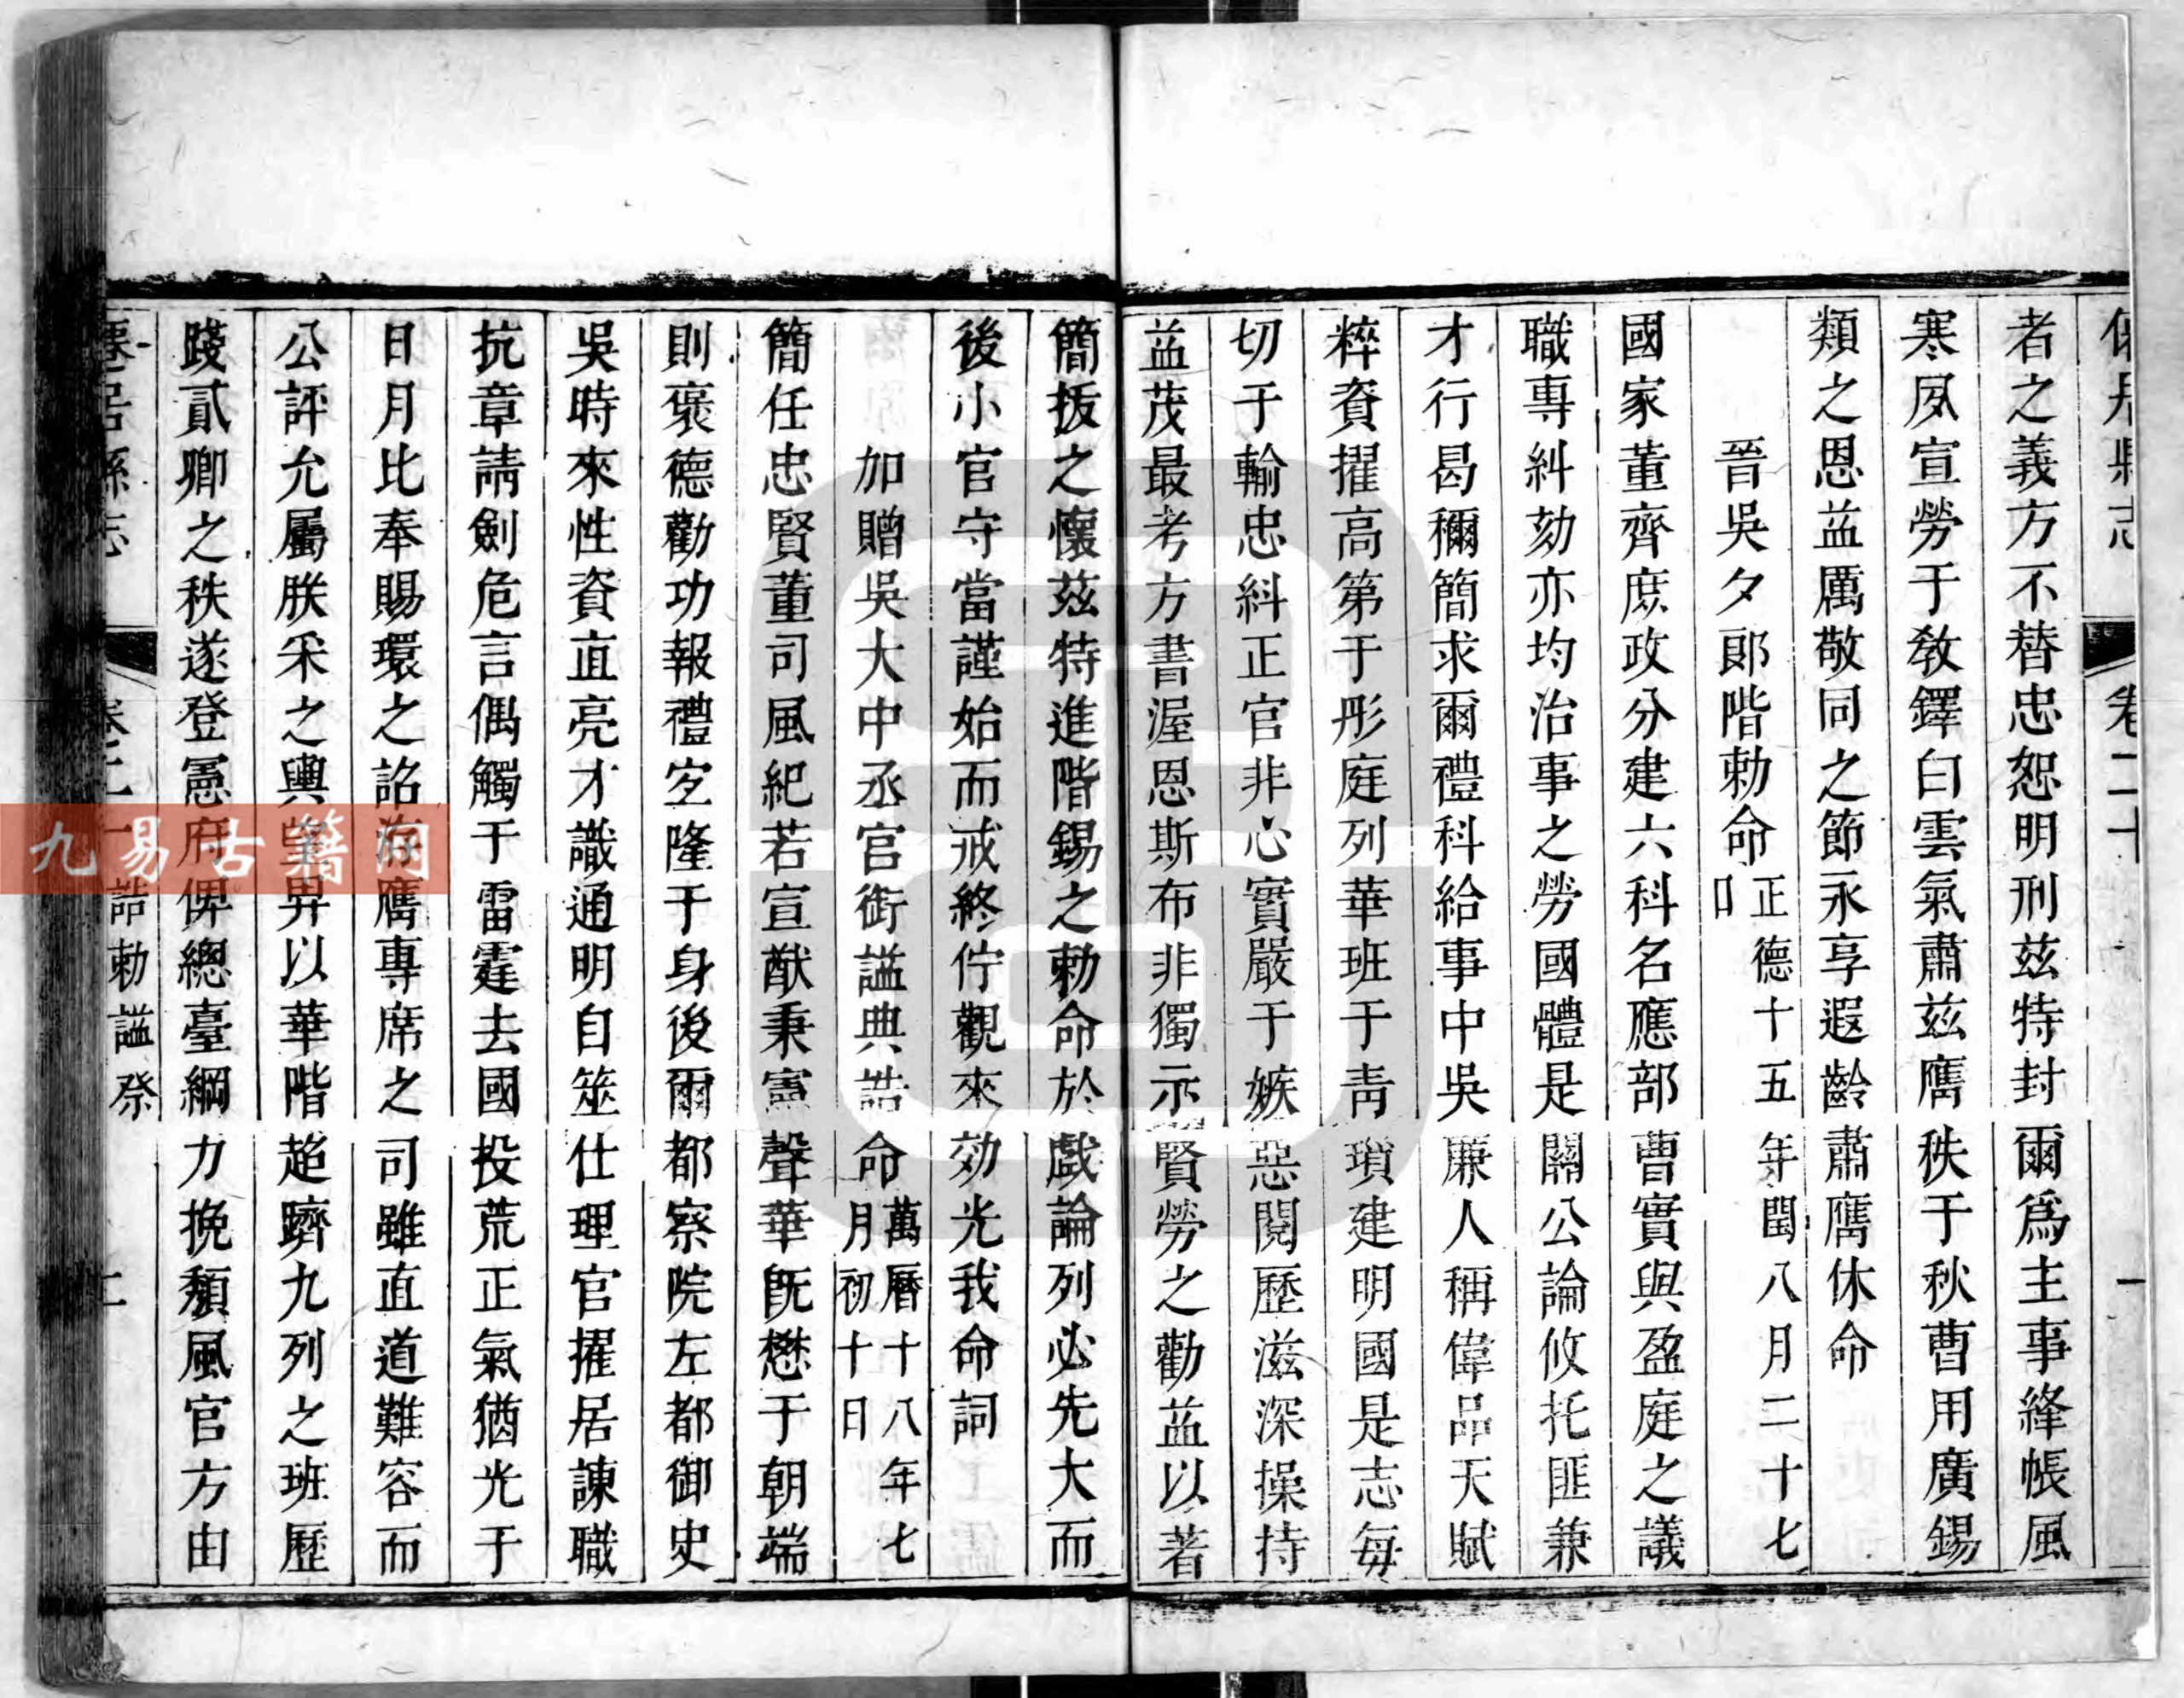 者之義方不替忠恕明刑茲特封爾爲主事絳帳風
寒夙宣勞于教鐸白雲氣肅茲膺秩于秋曹用廣錫
類之恩益厲敬同之節永享遐齡肅膺休命
晉吳夕郎階勅命正德十五年閏八月二十七日
國家董齊庶政分建六科名應部曹實與盈庭之議
職專糾劾亦均治事之勞國體是關公論攸托匪兼
才行曷穪簡求爾禮科給事中吳廉人稱偉品天賦
粹資擢高第于彤庭列華班于青瑣建明國是志每
切于輸忠糾正官非心實嚴于嫉惡閱歷滋深操持
益茂最考方書渥恩斯布非獨示賢勞之勸益以著
簡拔之懷茲特進階錫之勅命於戲論列必先大而
後小官守當謹始而戒終佇觀來効光我命詞
加贈吳大中丞官銜謚典誥命萬曆十八年七月初十日
簡任忠賢董司風紀若宣猷秉憲聲華旣懋于朝端
則褒德勸功報禮㝎隆于身後爾都察院左都御史
吳時來性資直亮才識通明自筮仕理官擢居諫職
抗章請劍危言偶觸于雷霆去國投荒正氣猶光于
日月比奉賜環之詔洊膺專席之司雖直道難容而
公評允屬朕采之輿望畀以華階超躋九列之班歷
踐貳卿之秩遂登憲府俾總臺綱力挽頹風官方由
誥勅謚祭 二
九易古籍网